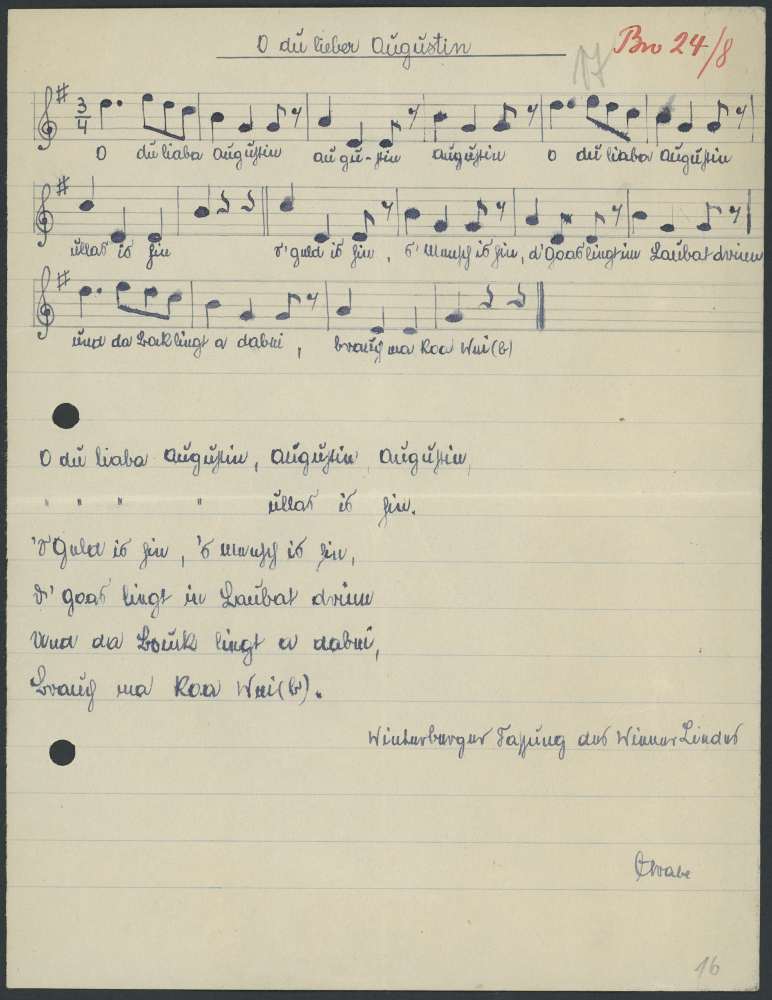 O du lieber Augustin
17
Bw 24/8
3/4
O du liaba Augustin Augustin Augustin O du liaba Augustin
ullas is hin 's' Guld is hin, 's Mensch is hin, d' Goas lingt im Laubat drinn
und da Bock lingt a dabei, brauch ma koa Wei(b)
O du liaba Augustin, Augustin, Augustin,
" " " " ullas is hin.
's Guld is hin, 's Mensch is hin,
d' Goas lingt in Laubat drinn
Und da Bouck lingt a dabei,
Brauch ma koa Wei(b).
Winterberger Fassung des Wiener Liedes
16